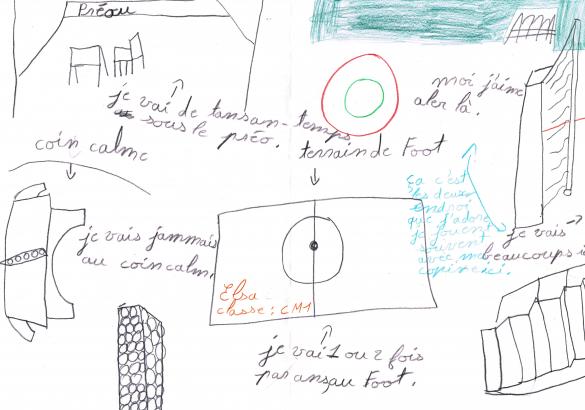 Préou
je vai de tansan-temps
sous le préo.
moi j'aime
aler là.
coin calme
terrain de Foot
ça c'est
les deux
endroi
que j'adore
je jouent
souvent
avec ma
copine ici.
je vais jammais
au coin calm.
je vais →
beaucoups i
Elsa
classe : CM1
je vai 1 ou 2 fois
par ans au Foot.